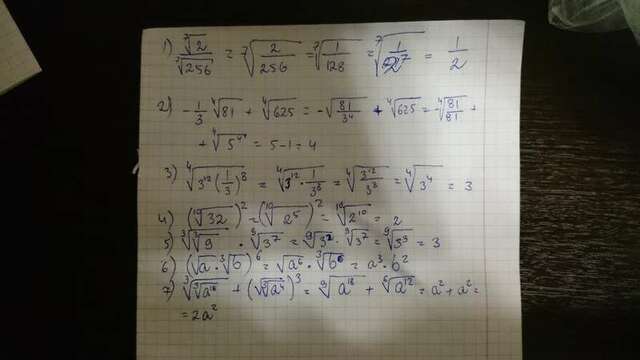 1) ⁷√2 / ⁷√256 = ⁷√(2/256) = ⁷√(1/128) = ⁷√(1/2⁷) = 1/2
2) -1/3 ⁴√81 + ⁴√625 = -√(81/3⁴) + ⁴√625 = -⁴√(81/81) +
+ ⁴√5⁴ = 5-1=4
3) ⁴√(3¹²(1/3)⁸) = ⁴√(3¹² · 1/3⁸) = ⁴√(3¹²/3⁸) = ⁴√3⁴ = 3
4) (¹⁰√32)² = (¹⁰√2⁵)² = ¹⁰√2¹⁰ = 2
5) ³√³√9 · ⁹√3⁷ = ⁹√3² · ⁹√3⁷ = ⁹√3⁹ = 3
6) (√a · ³√b)⁶ = √a⁶ · ³√b⁶ = a³ · b²
7) ³√³√a¹⁸ + (√³√a⁴)³ = ⁹√a¹⁸ + ⁶√a¹² = a² + a² =
= 2a²